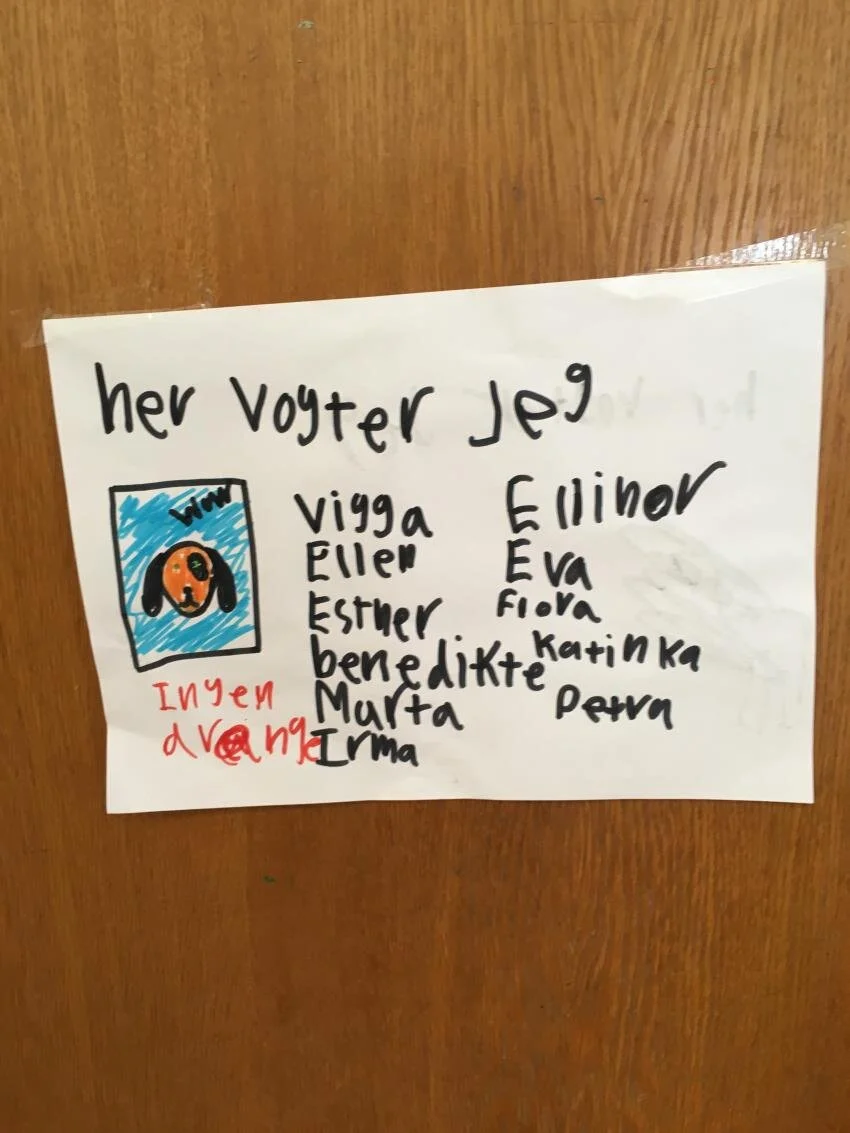 her voyter jeg
wow
Vigga
Ellen
Esther
benedikte
Marta
Irma
Ellinor
Eva
Flora
Katinka
Petra
Ingen
drenge